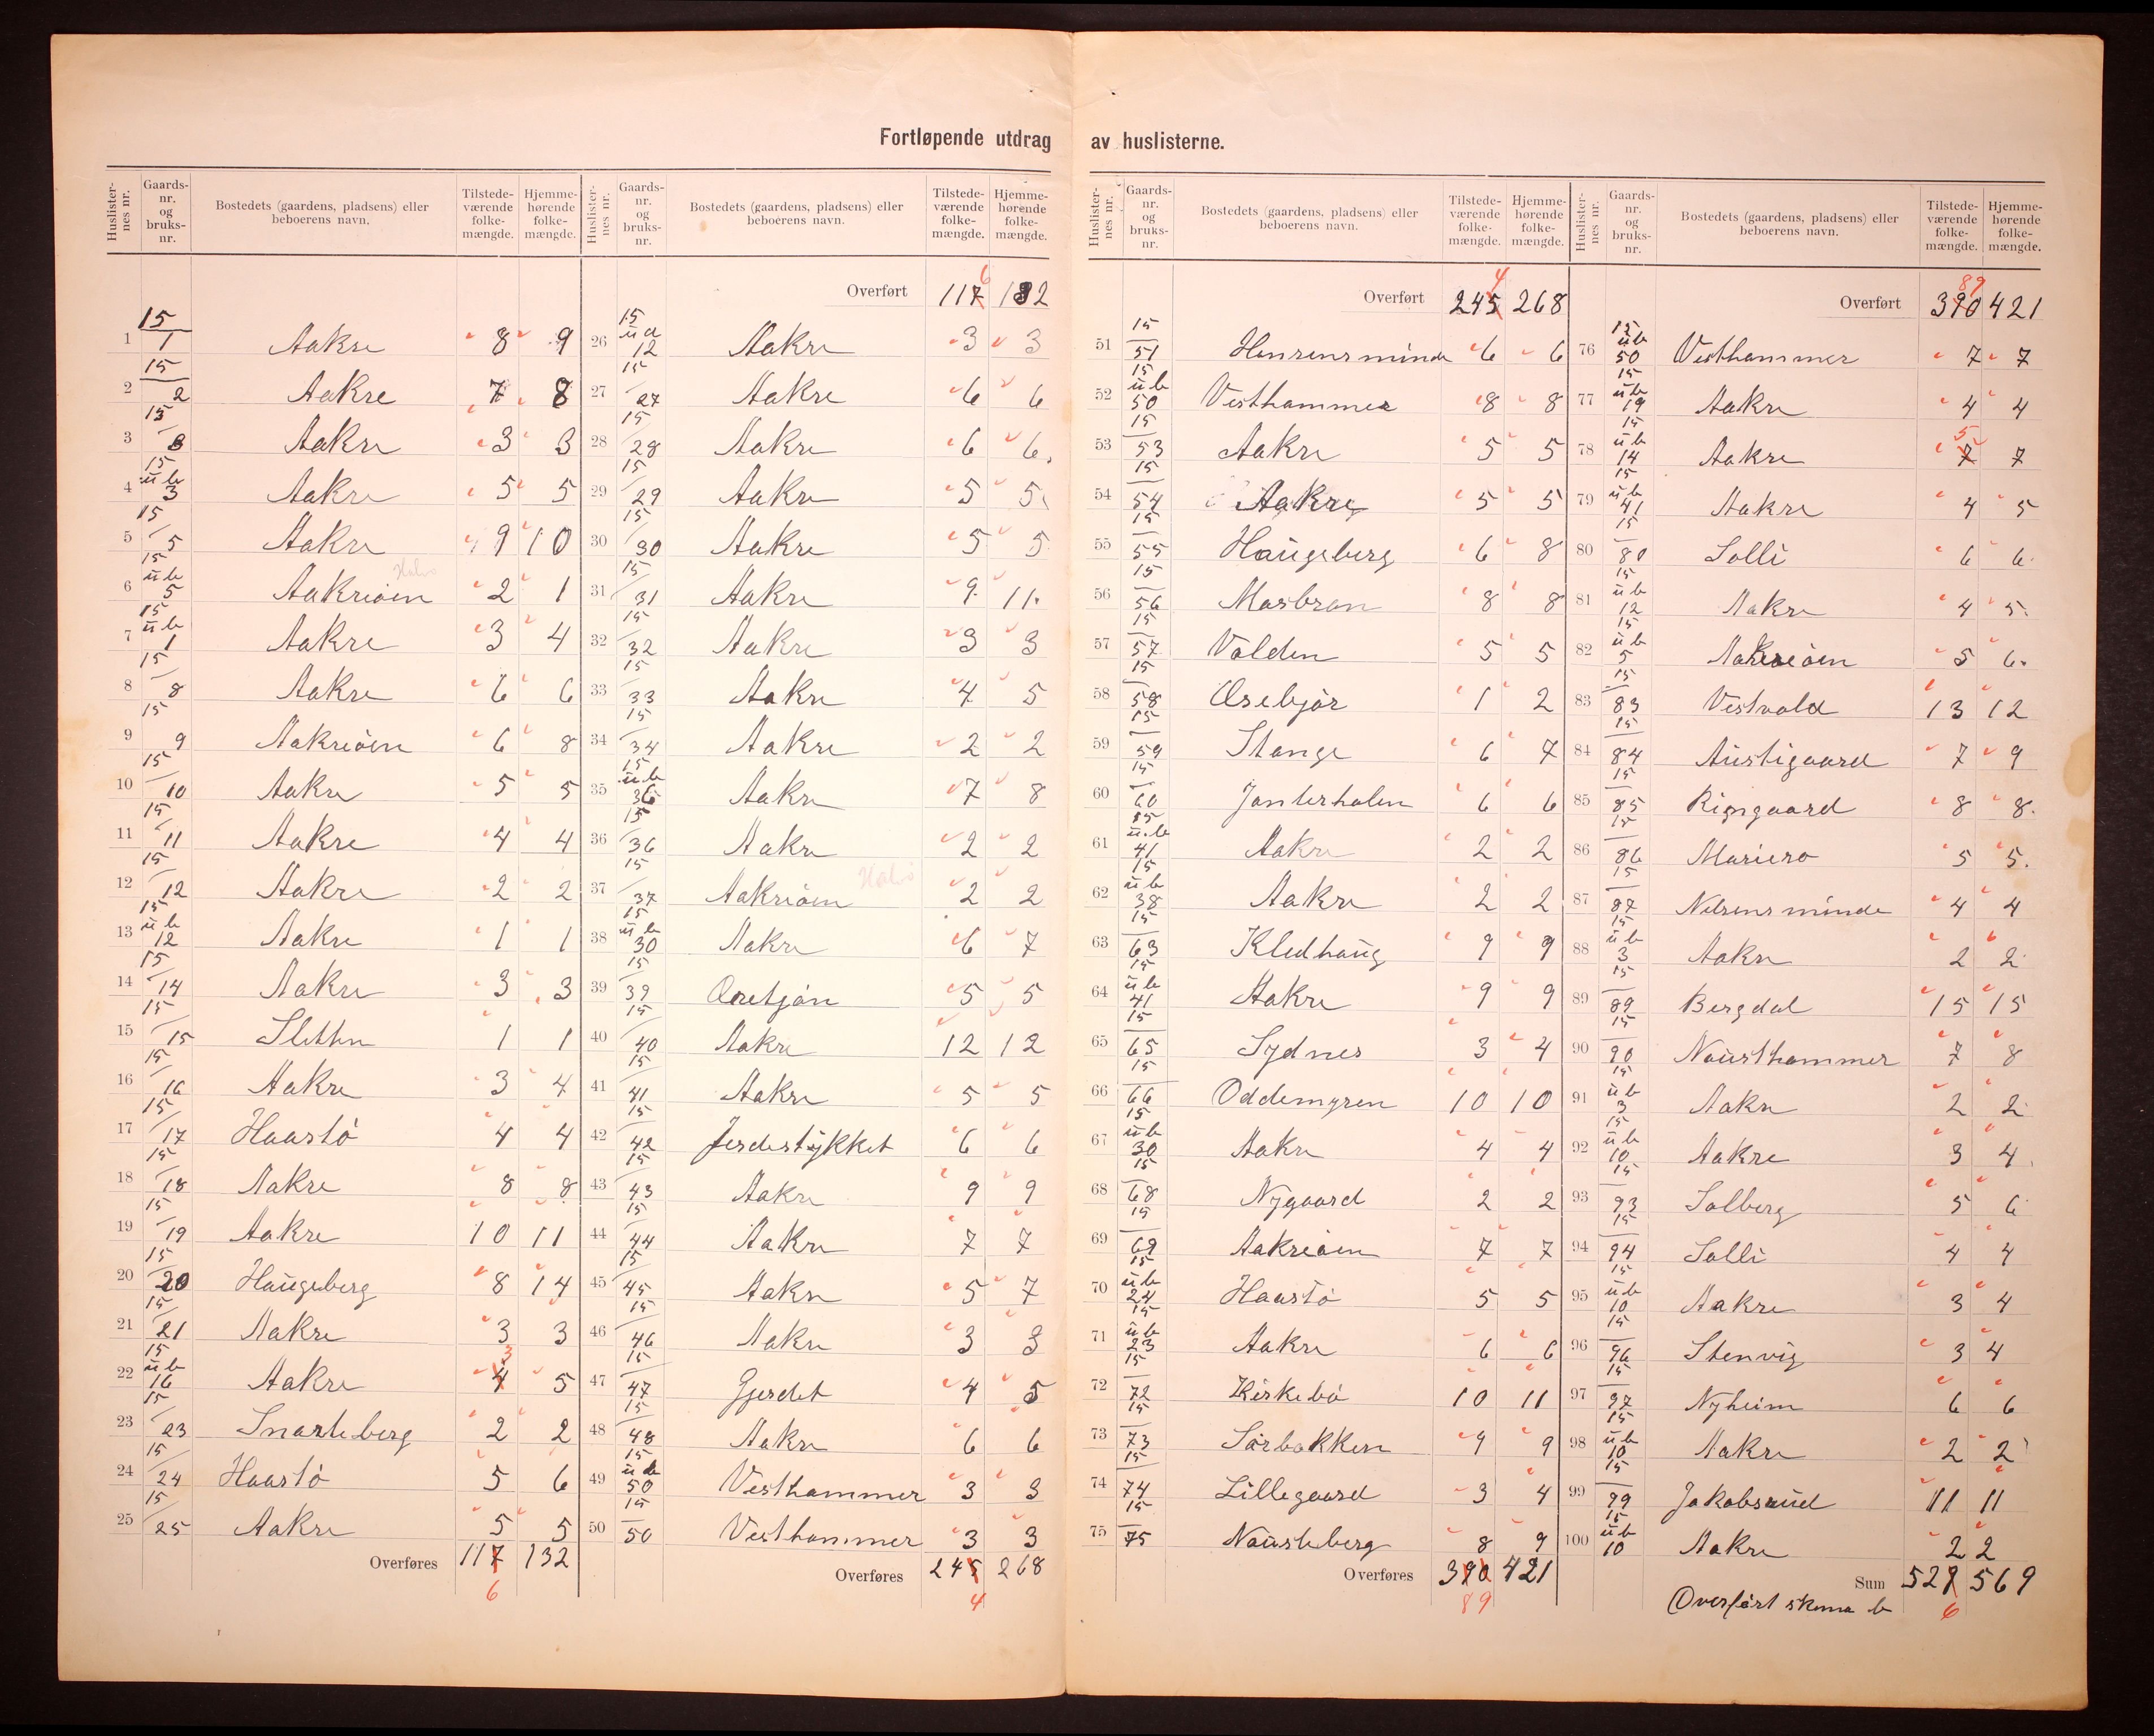 Fortløpende utdrag av huslisterne.
Huslisternes nr. Gaards-nr. og bruks-nr. Bostedets (gaardens, pladsens) eller beboerens navn. Tilstedeværende folkemængde. Hjemmehørende folkemængde.
1 15/1 Aakre 8 9
2 15/2 Aakre 7 8
3 15/3 Aakre 3 3
4 15/ub 3 Aakre 5 5
5 15/5 Aakre 9 10
6 15/ub 5 Aakreöen 2 1
7 15/ub 1 Aakre 3 4
8 15/8 Aakre 6 6
9 15/9 Aakreöen 6 8
10 15/10 Aakre 5 5
11 15/11 Aakre 4 4
12 15/12 Aakre 2 2
13 15/ub 12 Aakre 1 1
14 15/14 Aakre 3 3
15 15/15 Sletten 1 1
16 15/16 Aakre 3 4
17 15/17 Haastö 4 4
18 15/18 Aakre 8 8
19 15/19 Aakre 10 11
20 15/20 Haugeberg 8 14
21 15/21 Aakre 3 3
22 15/ub 16 Aakre 4 3 5
23 15/23 Snarteberg 2 2
24 15/24 Haastö 5 6
25 15/25 Aakre 5 5
Overføres 117 6 132
Huslisternes nr. Gaards-nr. og bruks-nr. Bostedets (gaardens, pladsens) eller beboerens navn. Tilstedeværende folkemængde. Hjemmehørende folkemængde.
Overført 117 6 132
26 15/ub 12 Aakre 3 3
27 15/27 Aakre 6 6
28 15/28 Aakre 6 6
29 15/29 Aakre 5 5
30 15/30 Aakre 5 5
31 15/31 Aakre 9 11
32 15/32 Aakre 3 3
33 15/33 Aakre 4 5
34 15/34 Aakre 2 2
35 15/ub 36 Aakre 7 8
36 15/36 Aakre 2 2
37 15/37 Aakreöen 2 2
38 15/ub 30 Aakre 6 7
39 15/39 5 5
40 15/40 Aakre 12 12
41 15/41 Aakre 5 5
42 15/42 Jerdestykket 6 6
43 15/43 Aakre 9 9
44 15/44 Aakre 7 7
45 15/45 Aakre 5 7
46 15/46 Aakre 3 3
47 15/47 Gjerdet 4 5
48 15/48 Aakre 6 6
49 15/ub 50 Vesthammer 3 3
50 15/50 Vesthammer 3 3
Overføres 245 4 268
Huslisternes nr. Gaards-nr. og bruks-nr. Bostedets (gaardens, pladsens) eller beboerens navn. Tilstedeværende folkemængde. Hjemmehørende folkemængde.
Overført 245 4 268
51 15/51 Hansensminde 6 6
52 15/ub 50 Vesthammer 8 8
53 15/53 Aakre 5 5
54 15/54 Aakre 5 5
55 15/55 Haugeberg 6 8
56 15/56 Masbran 8 8
57 15/57 Valden 5 5
58 15/58 1 2
59 15/59 Stange 6 7
60 15/60 6 6
61 15/ub 41 Aakre 2 2
62 15/ub 38 Aakre 2 2
63 15/63 Kledhaug 9 9
64 15/ub 41 Aakre 9 9
65 15/65 Sydnes 3 4
66 15/66 Oddemyren 10 10
67 15/ub 30 Aakre 4 4
68 15/68 Nygaard 2 2
69 15/69 Aakreöen 7 7
70 15/ub 24 Haastö 5 5
71 15/ub 23 Aakre 6 6
72 15/72 Kirkebö 10 11
73 15/73 Sörbakken 9 9
74 15/74 Lillegaard 3 4
75 15/75 Nausteberg 8 9
Overføres 390 89 421
Huslisternes nr. Gaards-nr. og bruks-nr. Bostedets (gaardens, pladsens) eller beboerens navn. Tilstedeværende folkemængde. Hjemmehørende folkemængde.
Overført 390 89 421
76 15/ub 50 Vesthammer 7 7
77 15/ub 19 Aakre 4 4
78 15/ub 14 Aakre 7 5 7
79 15/ub 41 Aakre 4 5
80 15/80 Solli 6 6
81 15/ub 12 Aakre 4 5
82 15/ub 5 Aakreöen 5 6
83 15/83 Vestvold 13 12
84 15/84 Austigaard 7 9
85 15/85 Ringaard 8 8
86 15/86 Mariero 5 5
87 15/87 Nilsensminde 4 4
88 15/ub 3 Aakre 2 2
89 15/89 Bergdal 15 15
90 15/90 Nausthammer 7 8
91 15/ub 3 Aakre 2 2
92 15/ub 10 Aakre 3 4
93 15/93 Solberg 5 6
94 15/94 Solli 4 4
95 15/ub 10 Aakre 3 4
96 15/96 Stenvig 3 4
97 15/97 Nyheim 6 6
98 15/ub 10 Aakre 2 2
99 15/99 Jakobsrud 11 11
100 15/ub 10 Aakre 2 2
Sum 529 6 569
Overført skema b